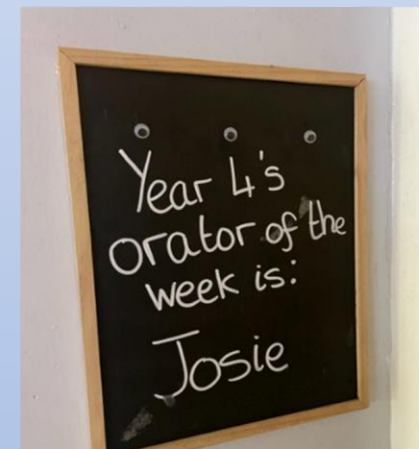 Year 4's
orator of the
week is:
Josie